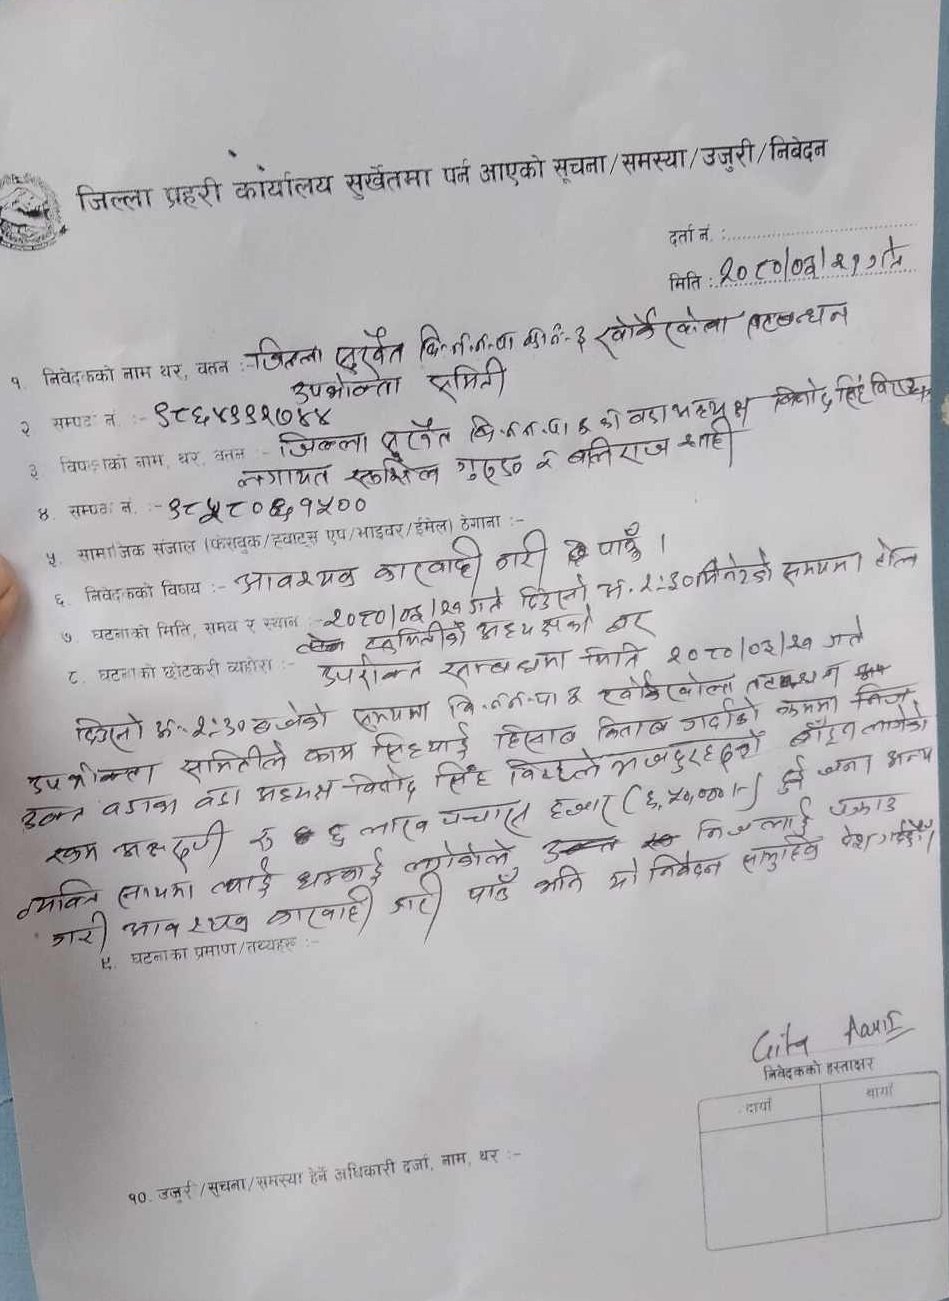 जिल्ला प्रहरी कार्यालय सुर्खेतमा पर्न आएको सूचना/समस्या/उजुरी/निवेदन
दर्ता नं. :
मिति : २०८०/०३/२१ गते
१ निवेदकको नाम थर, वतन :- जिल्ला सुर्खेत बि.न.न.पा वडा नं-३ खोर्केखोला तटबन्धन
उपभोक्ता समिती
२ सम्पर्क नं. :- ९८६४९११७४४
३ विपक्षको नाम, थर, वतन :- जिल्ला सुर्खेत बि.न.न.पा ३ का वडा अध्यक्ष विनोद सिंह
लगायत गुरुङ र बलिराज शाही
४. सम्पर्क नं. :- ९८५८०६१५००
५. सामाजिक संजाल (फेसबुक/ह्वाट्स एप/भाइबर/ईमेल) ठेगाना :-
६. निवेदकको विषय :- आवश्यक कारवाही गरी पाउँ ।
७ घटनाको मिति, समय र स्थान :- २०८०/०३/२१ गते दिउसो अ. २:३० मिनेटको समयमा
समितीको अध्यक्षको घर
८. घटनाको छोटकरी व्यहोरा :- उपरोक्त सम्बन्धमा मिति २०८०/०३/२१ गते
दिउसो अ. २:३० बजेको समयमा बि.न.न.पा ३ खोर्केखोला तटबन्धन
उपभोक्ता समितीले काम सिध्याई हिसाब किताब गर्दाको क्रममा निज
उक्त वडाका वडा अध्यक्ष विनोद सिंह ले मजदुरहरुको बाँड्न लागेको
रकम रु ६ लाख पचास हजार (६,५०,०००।-) दुई जना अन्य
व्यक्ति साथमा ल्याई धम्काई लगेकोले निजलाई पक्राउ
गरी आवश्यक कारवाही गरी पाउँ भनि यो निवेदन पेश गर्दछौं।
९. घटनाका प्रमाण/तथ्यहरु :-
Gita
निवेदकको हस्ताक्षर
दायाँ बायाँ
१०. उजुरी/सूचना/समस्या हेर्ने अधिकारी दर्जा, नाम, थर :-